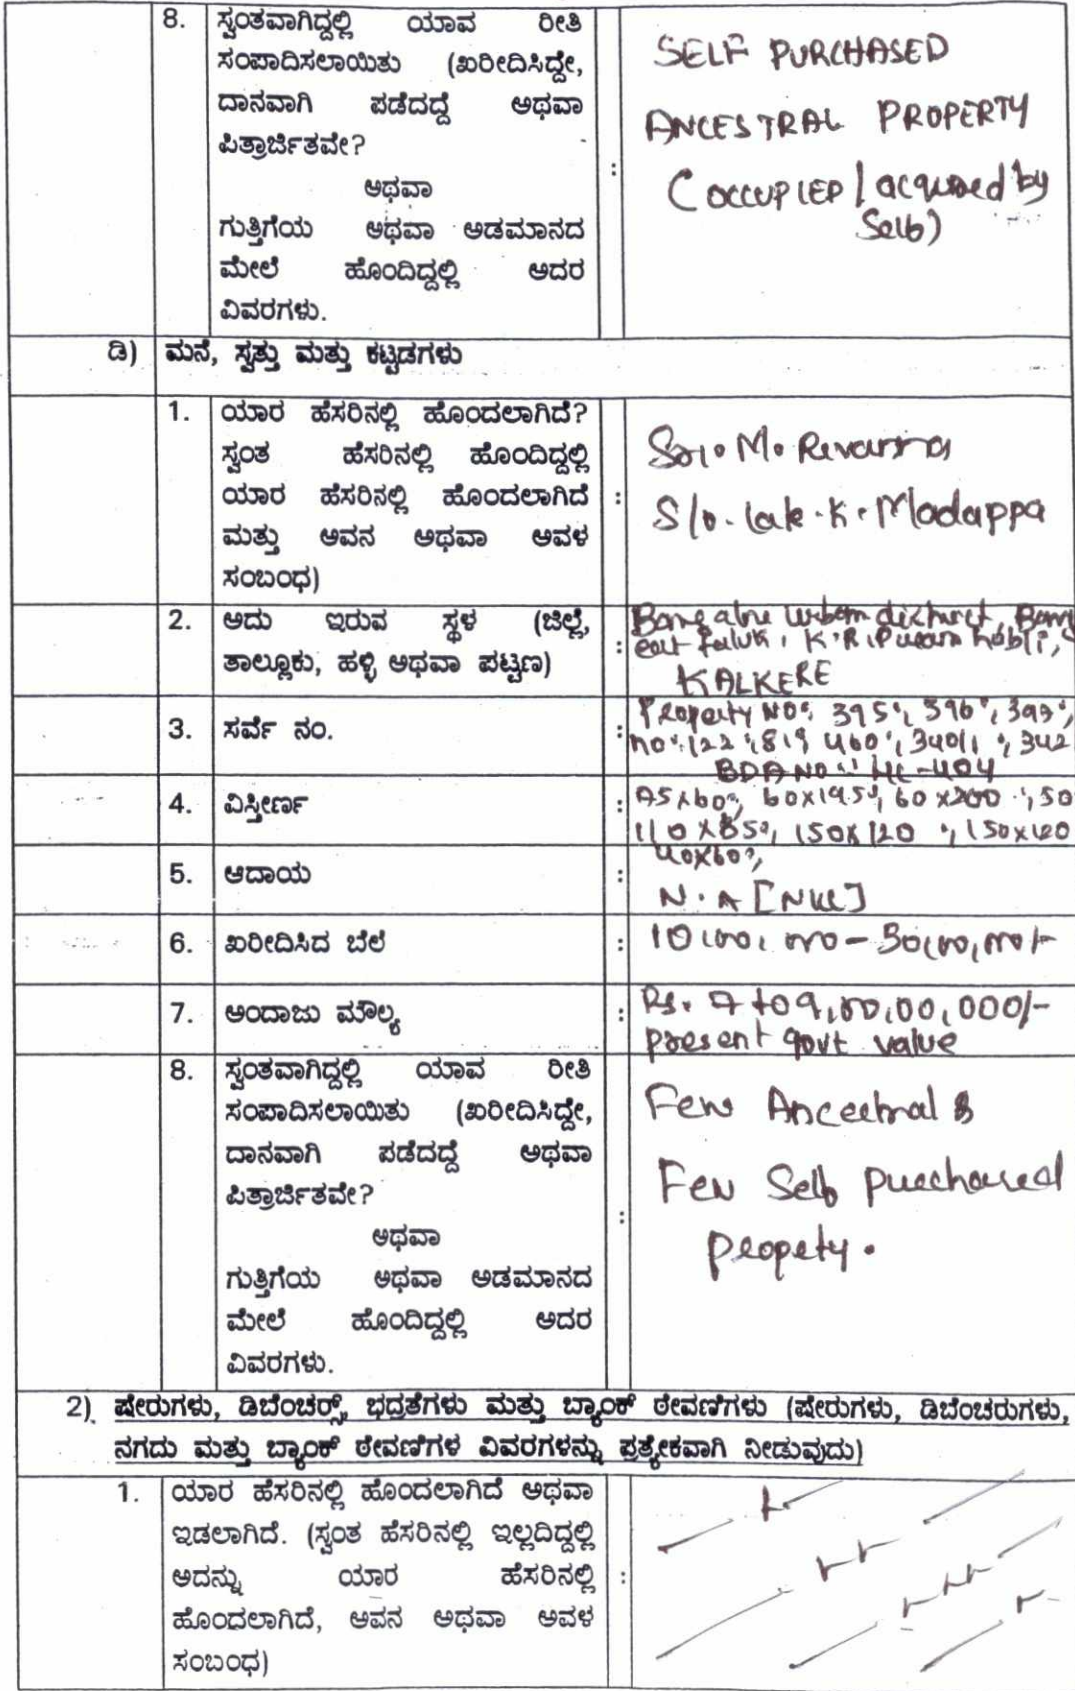 8. ಸ್ವಂತವಾಗಿದ್ದಲ್ಲಿ ಯಾವ ರೀತಿ
ಸಂಪಾದಿಸಲಾಯಿತು (ಖರೀದಿಸಿದ್ದೇ,
ದಾನವಾಗಿ ಪಡೆದದ್ದೆ ಅಥವಾ
ಪಿತ್ರಾರ್ಜಿತವೇ?
ಅಥವಾ
ಗುತ್ತಿಗೆಯ ಅಥವಾ ಅಡಮಾನದ
ಮೇಲೆ ಹೊಂದಿದ್ದಲ್ಲಿ ಅದರ
ವಿವರಗಳು.
:
SELF PURCHASED
ANCESTRAL PROPERTY
(OCCUPIED / acquired by
Self)
ಡಿ) ಮನೆ, ಸ್ವತ್ತು ಮತ್ತು ಕಟ್ಟಡಗಳು
1. ಯಾರ ಹೆಸರಿನಲ್ಲಿ ಹೊಂದಲಾಗಿದೆ?
ಸ್ವಂತ ಹೆಸರಿನಲ್ಲಿ ಹೊಂದಿದ್ದಲ್ಲಿ
ಯಾರ ಹೆಸರಿನಲ್ಲಿ ಹೊಂದಲಾಗಿದೆ
ಮತ್ತು ಅವನ ಅಥವಾ ಅವಳ
ಸಂಬಂಧ)
:
Sri. M. Revanna
S/o. late. K. Madappa
2. ಅದು ಇರುವ ಸ್ಥಳ (ಜಿಲ್ಲೆ,
ತಾಲ್ಲೂಕು, ಹಳ್ಳಿ ಅಥವಾ ಪಟ್ಟಣ)
:
Bangalore urban district, Bang
east taluk, K.R.Puram hobli,
KALKERE
3. ಸರ್ವೆ ನಂ. :
Property NO: 395, 396,
no: 122, 819, 460, 340/1, 342
BDA NO
4. ವಿಸ್ತೀರ್ಣ :
60x195, 60x200, 50
110x85, 150x120, 150x120
40x60,
5. ಆದಾಯ :
N.A [NIL]
6. ಖರೀದಿಸಿದ ಬೆಲೆ :
10,00,000 - 30,00,000/-
7. ಅಂದಾಜು ಮೌಲ್ಯ :
Rs. 7 to 9,00,00,000/-
present govt value
8. ಸ್ವಂತವಾಗಿದ್ದಲ್ಲಿ ಯಾವ ರೀತಿ
ಸಂಪಾದಿಸಲಾಯಿತು (ಖರೀದಿಸಿದ್ದೇ,
ದಾನವಾಗಿ ಪಡೆದದ್ದೆ ಅಥವಾ
ಪಿತ್ರಾರ್ಜಿತವೇ?
ಅಥವಾ
ಗುತ್ತಿಗೆಯ ಅಥವಾ ಅಡಮಾನದ
ಮೇಲೆ ಹೊಂದಿದ್ದಲ್ಲಿ ಅದರ
ವಿವರಗಳು.
:
Few Ancestral &
Few Self purchased
propety.
2) ಷೇರುಗಳು, ಡಿಬೆಂಚರ್ಸ್, ಭದ್ರತೆಗಳು ಮತ್ತು ಬ್ಯಾಂಕ್ ಠೇವಣಿಗಳು (ಷೇರುಗಳು, ಡಿಬೆಂಚರುಗಳು,
ನಗದು ಮತ್ತು ಬ್ಯಾಂಕ್ ಠೇವಣಿಗಳ ವಿವರಗಳನ್ನು ಪ್ರತ್ಯೇಕವಾಗಿ ನೀಡುವುದು)
1. ಯಾರ ಹೆಸರಿನಲ್ಲಿ ಹೊಂದಲಾಗಿದೆ ಅಥವಾ
ಇಡಲಾಗಿದೆ. (ಸ್ವಂತ ಹೆಸರಿನಲ್ಲಿ ಇಲ್ಲದಿದ್ದಲ್ಲಿ
ಅದನ್ನು ಯಾರ ಹೆಸರಿನಲ್ಲಿ
ಹೊಂದಲಾಗಿದೆ, ಅವನ ಅಥವಾ ಅವಳ
ಸಂಬಂಧ)
: